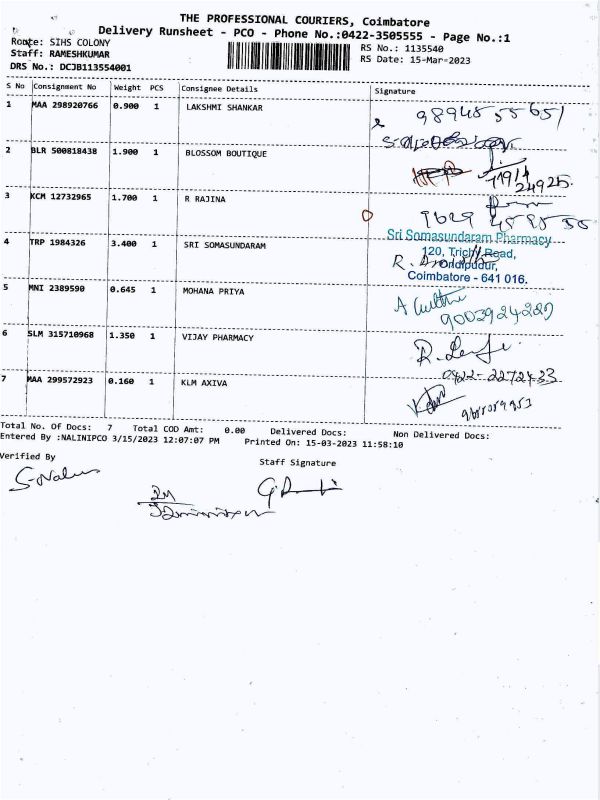 THE PROFESSIONAL COURIERS, Coimbatore
Delivery Runsheet - PCO - Phone No.:0422-3505555 - Page No.:1
Route: SIHS COLONY
Staff: RAMESHKUMAR
DRS No.: DCJB113554001
RS No.: 1135540
RS Date: 15-Mar-2023
S No Consignment No Weight PCS Consignee Details Signature
1 MAA 298920766 0.900 1 LAKSHMI SHANKAR
2 BLR 500818438 1.900 1 BLOSSOM BOUTIQUE
24925.
3 KCM 12732965 1.700 1 R RAJINA
4 TRP 1984326 3.400 1 SRI SOMASUNDARAM
Sri Somasundaram Pharmacy
120, Trichy Road,
Ondipudur,
Coimbatore - 641 016.
5 MNI 2389590 0.645 1 MOHANA PRIYA
9003924229
6 SLM 315710968 1.350 1 VIJAY PHARMACY
0422-2272433
7 MAA 299572923 0.160 1 KLM AXIVA
Total No. Of Docs: 7 Total COD Amt: 0.00 Delivered Docs: Non Delivered Docs:
Entered By :NALINIPCO 3/15/2023 12:07:07 PM Printed On: 15-03-2023 11:58:10
Verified By
Staff Signature